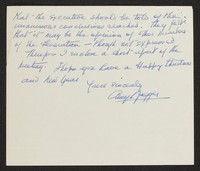 that the Executive should be told of the
unanimous conclusions reached. They felt
that it may be the opinion of other members
of the Association – though not expressed
therefore I making a short report of the
meeting. I hope you have a Happy Christmas
and New Year.
Yours sincerely